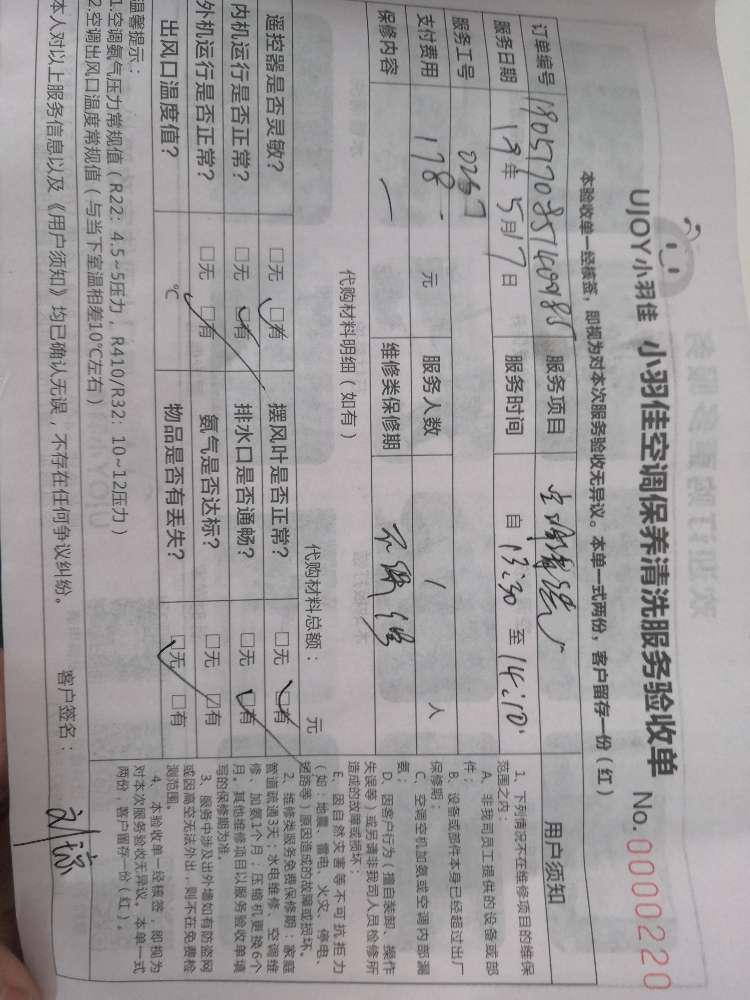 UJOY小羽佳 小羽佳空调保养清洗服务验收单 No.0000220
本验收单一经核签，即视为对本次服务验收无异议。本单一式两份，客户留存一份（红）
订单编号 190577085140985 服务项目 空调清洗
服务日期 19年 5月17日 服务时间 自 13:30 至 14:10
服务工号 0267
支付费用 178 元 服务人数 1 人
保修内容 一 维修类保修期
代购材料明细（如有） 代购材料总额： 元
遥控器是否灵敏？ □无 □有 摆风叶是否正常？ □无 □有
内机运行是否正常？ □无 □有 排水口是否通畅？ □无 □有
外机运行是否正常？ □无 □有 氨气是否达标？ □无 ☑有
出风口温度值？ ℃ 物品是否有丢失？ □无 □有
温馨提示：
1.空调氨气压力常规值（R22：4.5~5压力，R410/R32：10~12压力）
2.空调出风口温度常规值（与当下室温相差10℃左右）
本人对以上服务信息以及《用户须知》均已确认无误，不存在任何争议纠纷。 客户签名：
用户须知
1、下列情况不在维修项目的维保
范围之内：
A、非我司员工提供的设备或部
件；
B、设备或部件本身已经超过出厂
保修期；
C、空调空机加氨或空调内部漏
氨；
D、因客户行为（擅自装卸、操作
失误等）或另请非我司人员检修所
造成的故障或损坏；
E、因自然灾害等不可抗拒力
（如：地震、雷电、火灾、停电、
短路等）原因造成的故障或损坏。
2、维修类服务免费保修期：家庭
管道疏通3天；水电维修、空调维
修、加氨1个月；压缩机更换6个
月。其他维修项目以服务验收单填
写的保修期为准。
3、服务中涉及出外墙如有防盗网
或因高空无法外出，则不在免费检
测范围。
4、本验收单一经核签，即视为
对本次服务验收无异议。本单一式
两份，客户留存一份（红）。